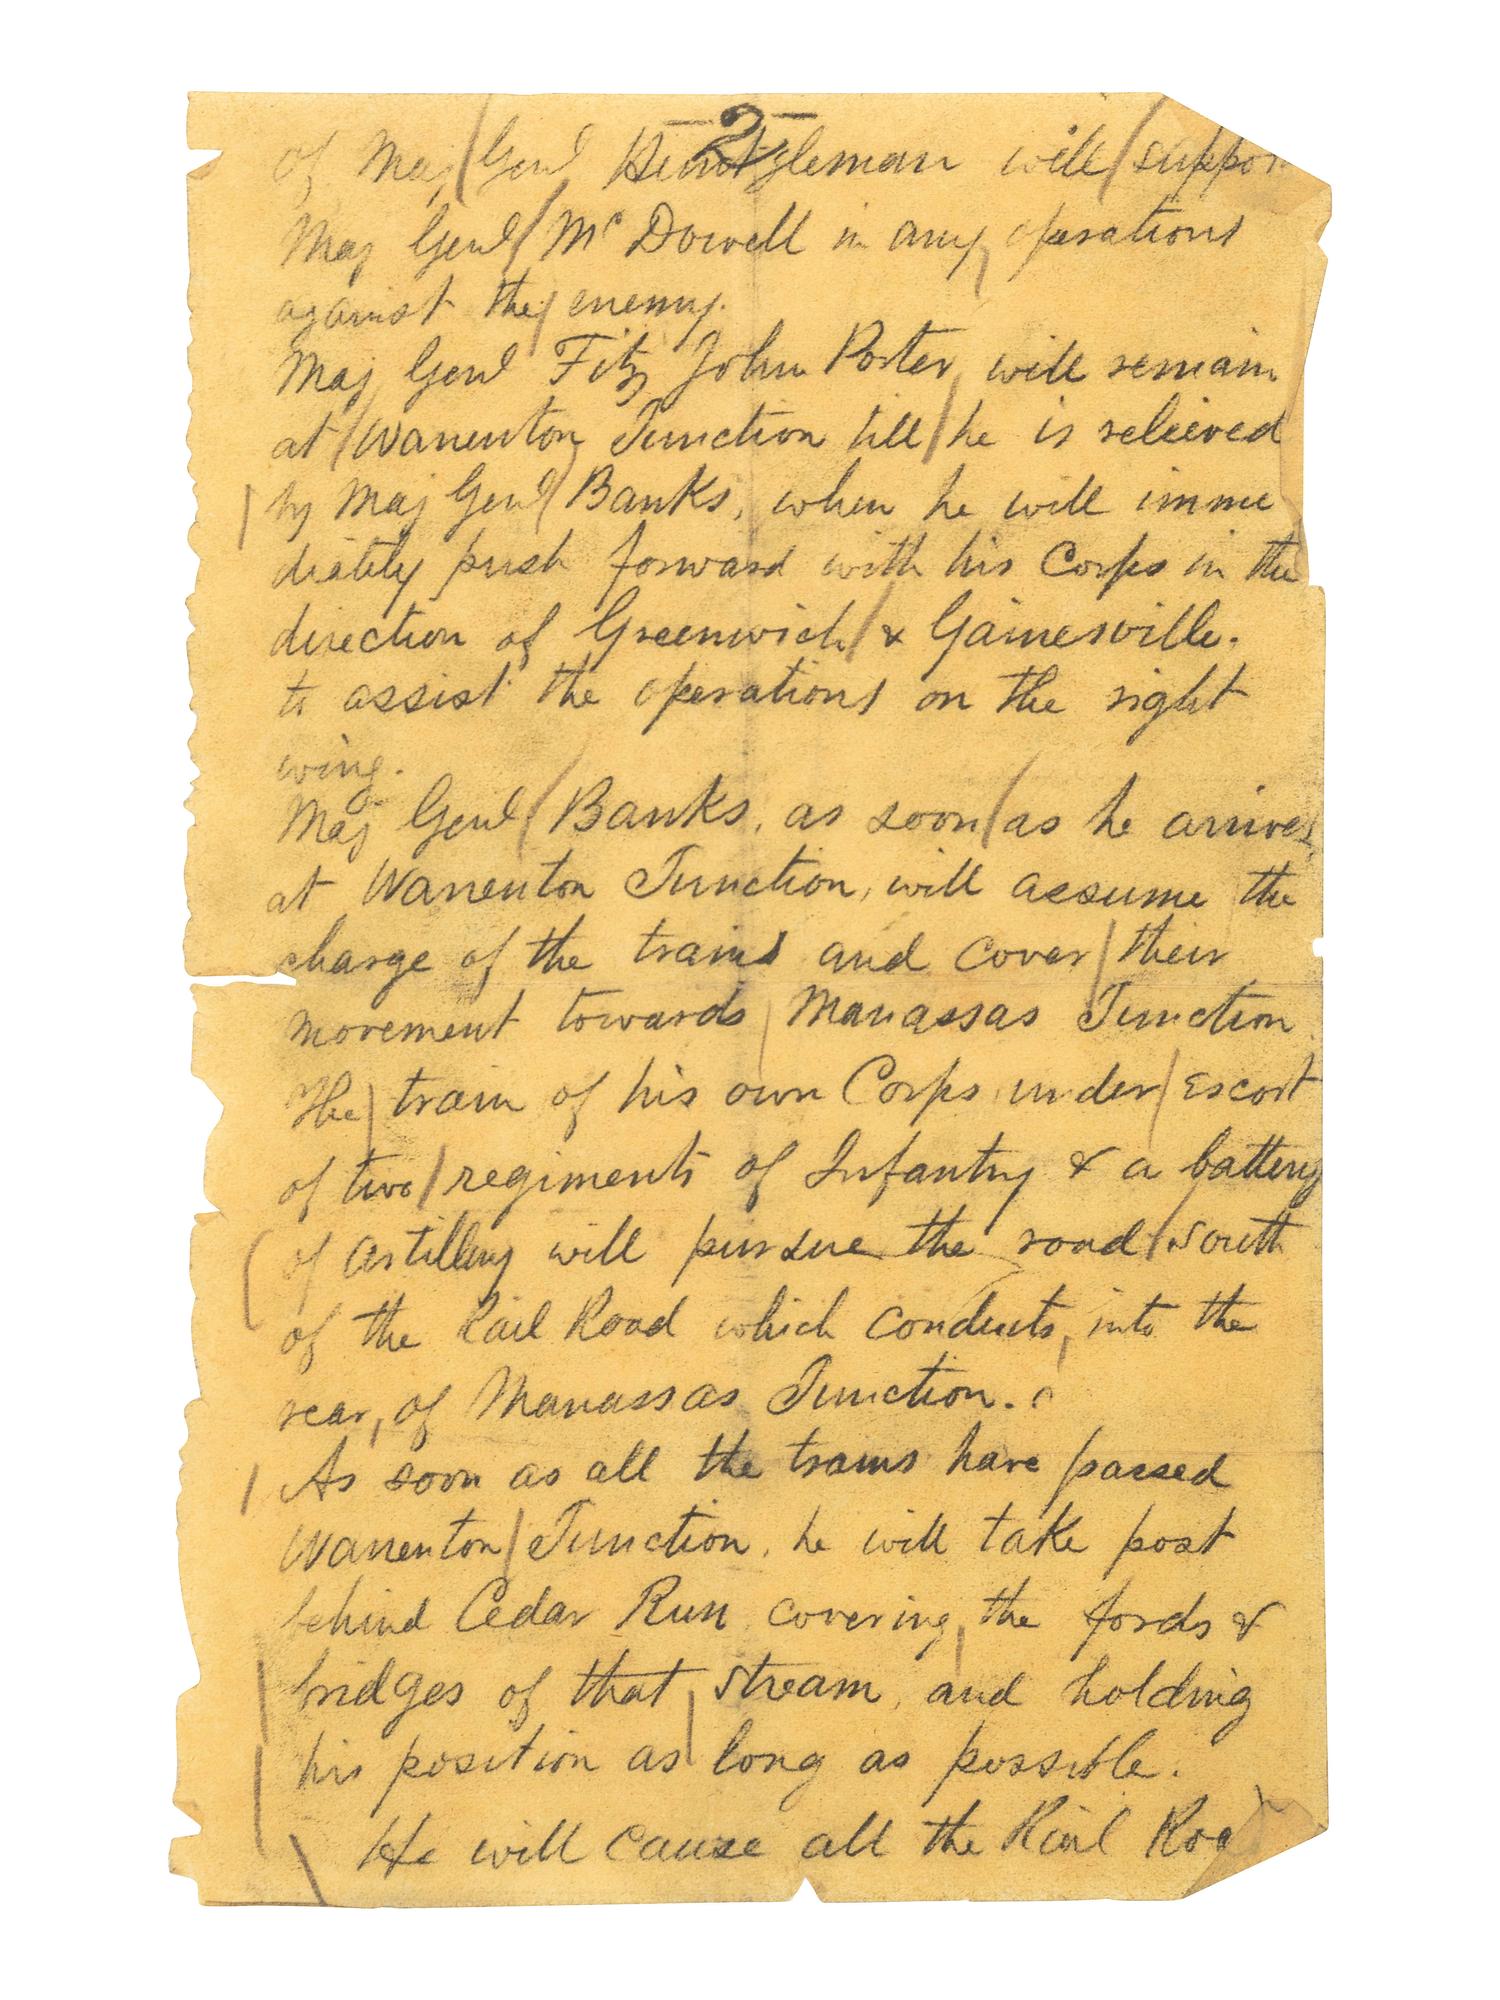 –2–
of Maj Genl Heintzleman will suppor
Maj Genl Mc Dowell in any operations
against the enemy.
Maj Genl Fitz John Porter, will remain
at Warrenton Junction till he is relieved
by Maj Genl Banks, when he will imme
diately push forward with his Corps in the
direction of Greenwich & Gainesville.
to assist the operations on the right
wing.
Maj Genl Banks, as soon as he arrives
at Warrenton Junction, will assume the
charge of the trains and cover their
movement towards Manassas Junction
The train of his own Corps under escort
of two regiments of Infantry & a battery
of artillery will pursue the road south
of the Rail Road which conducts, into the
rear, of Manassas Junction.
As soon as all the trains have passed
Warrenton Junction, he will take post
behind Cedar Run covering the fords &
bridges of that stream, and holding
his position as long as possible.
He will cause all the Rail Roa